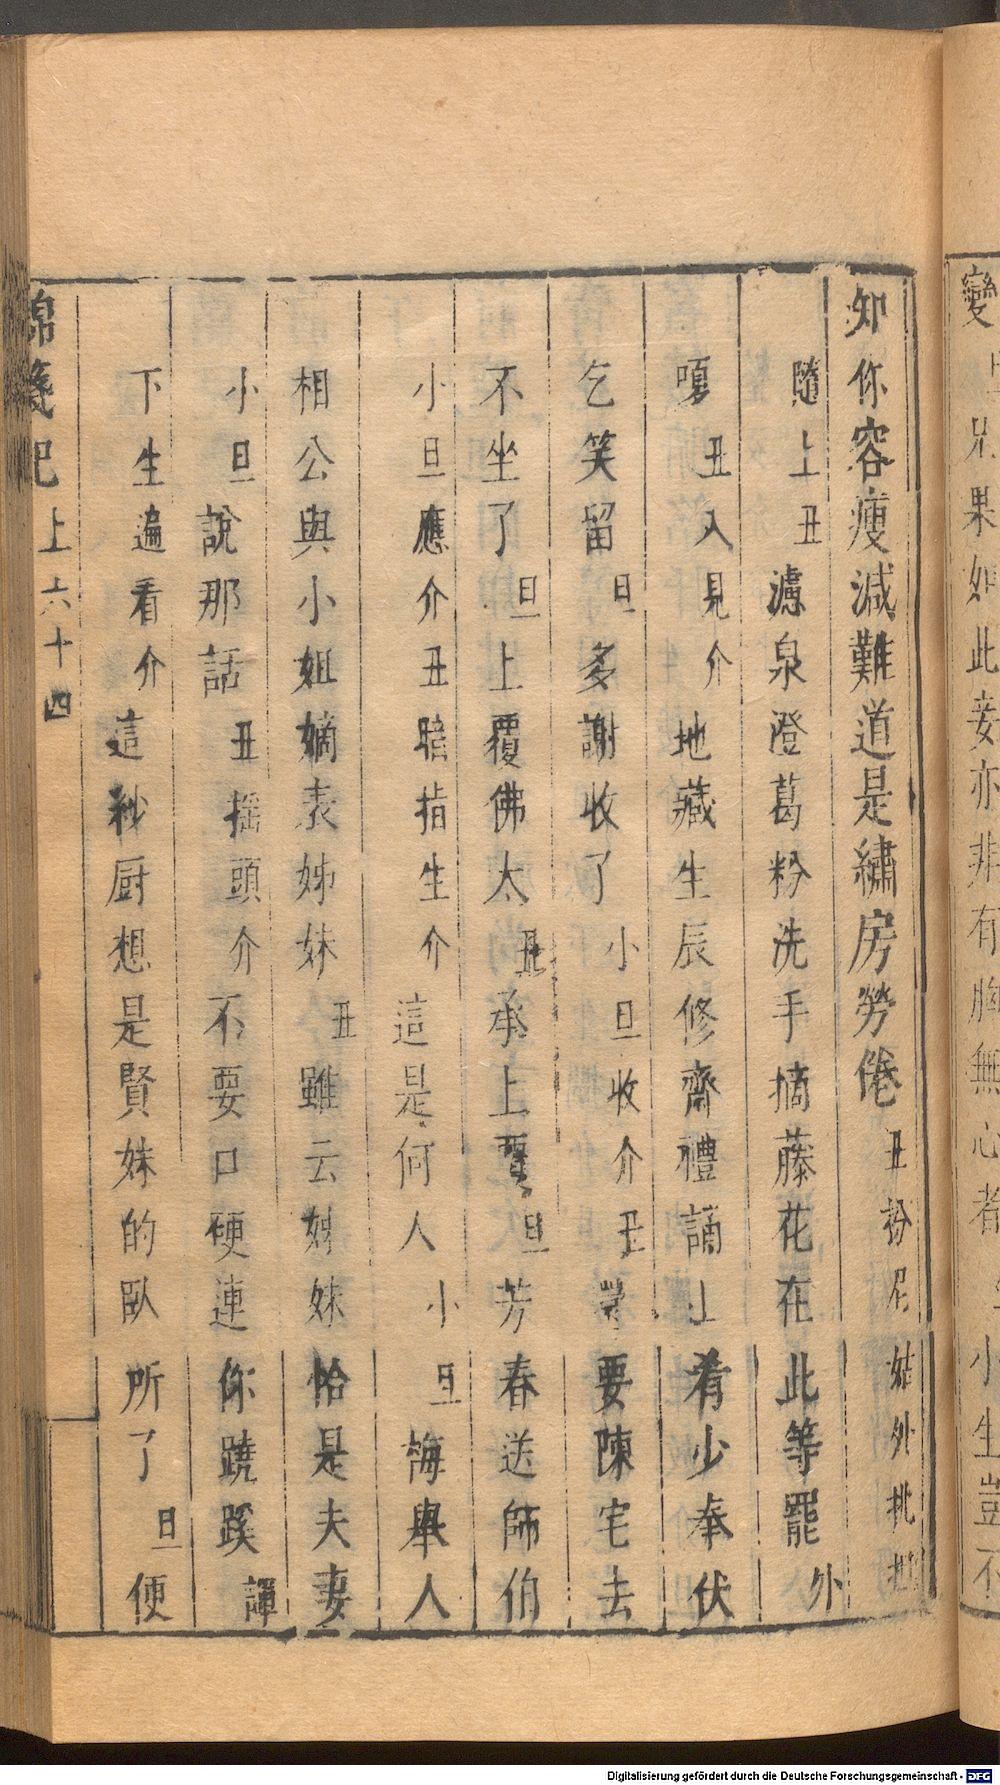 變 兄果如此妾亦非有胸無心者 小生豈不
知你容瘦減難道是繡房勞倦 丑扮尼姑外挑
隨上丑 濾泉澄葛粉洗手摘藤花在此等罷 外
嗄 丑入見介 地藏生辰修齋禮誦 肴少奉伏
乞笑留 旦 多謝收了 小旦收介丑 要陳宅去
不坐了 旦 上覆佛太 丑 承上 旦 芳春送師伯
小旦應介丑暗指生介 這是何人 小旦 海舉人
相公與小姐嫡表姊妹 丑 雖云姊妹恰是夫妻
小旦 說那話 丑搖頭介 不要口硬連你蹺蹊 諢
下生遍看介 這紗厨想是賢妹的臥所了 旦 便
錦箋記 上 六十四
Digitalisierung gefördert durch die Deutsche Forschungsgemeinschaft - DFG